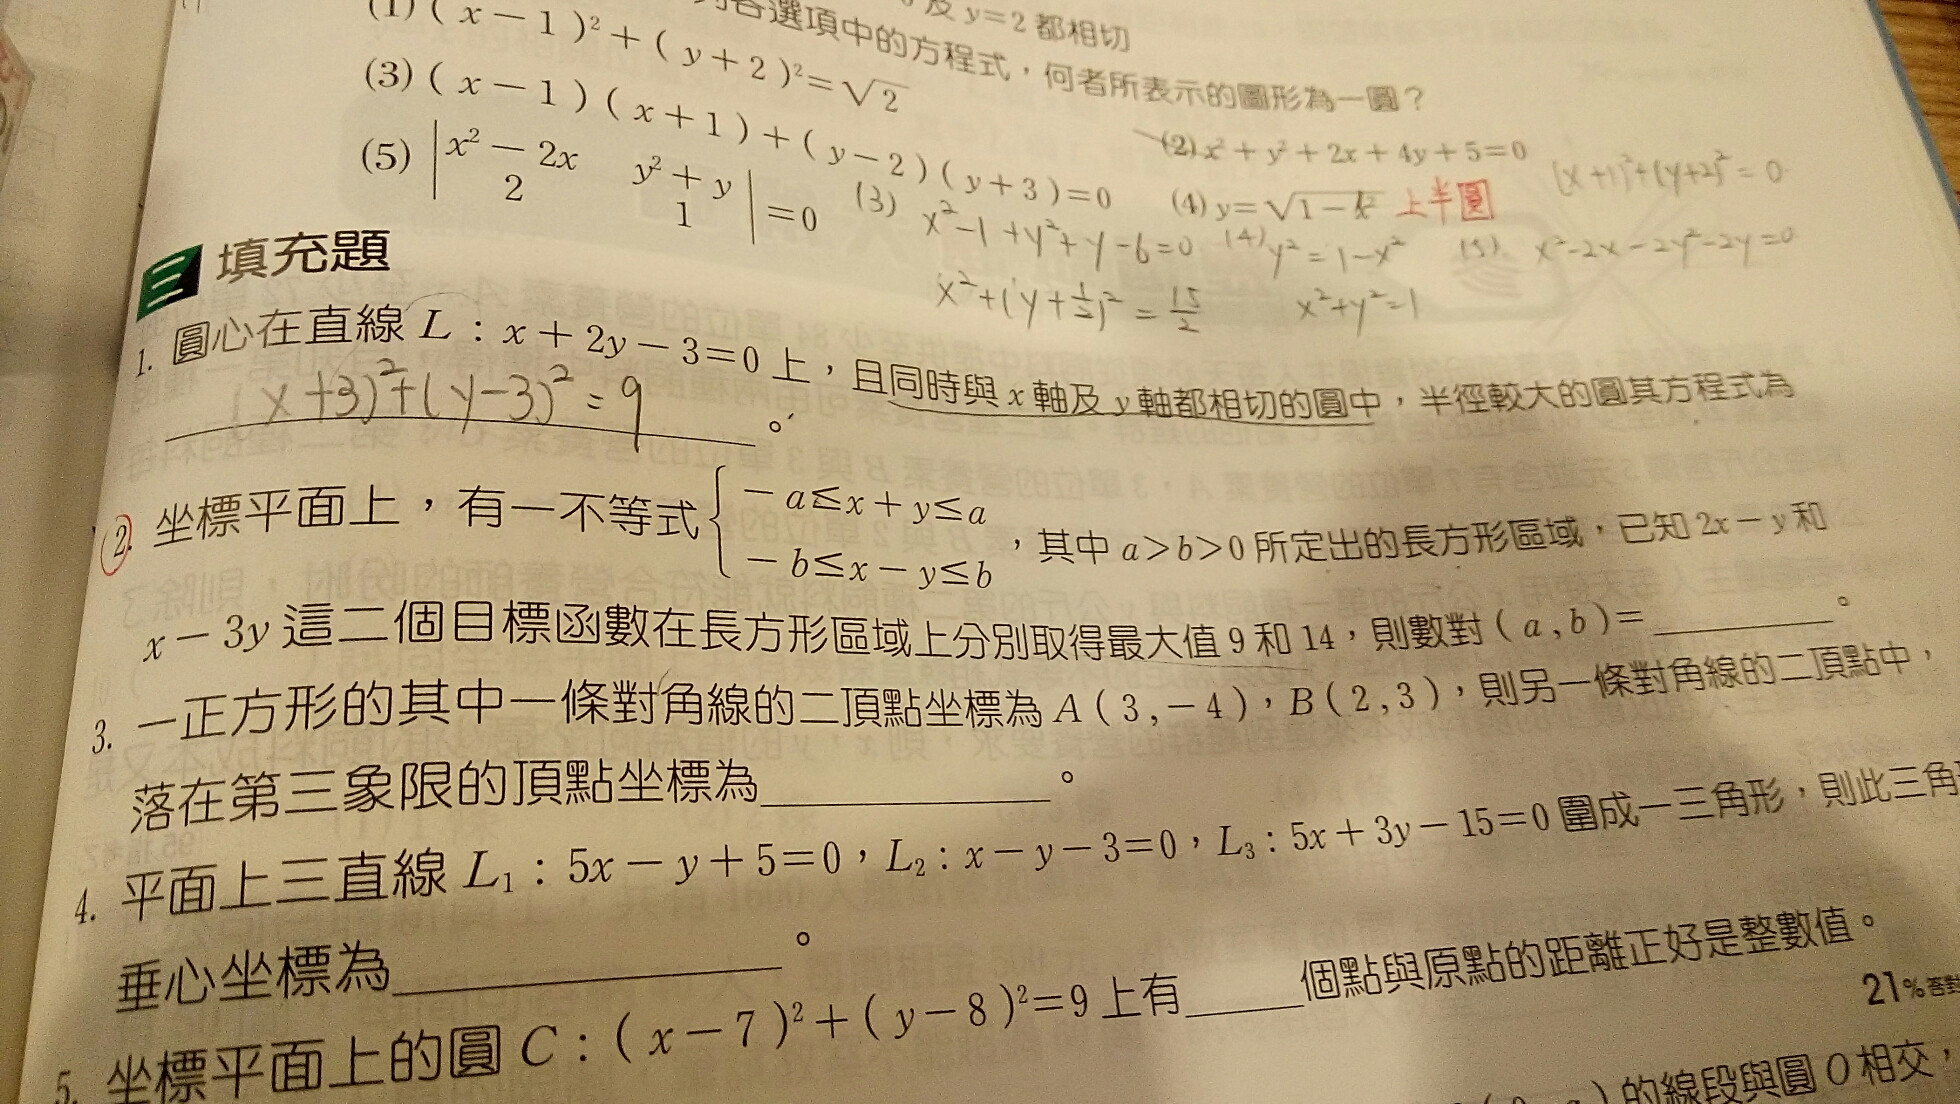 及 y=2 都相切
各選項中的方程式，何者所表示的圖形為一圓？
(1) ( x − 1 )² + ( y + 2 )² = √2
(2) x² + y² + 2x + 4y + 5 = 0 (x+1)²+(y+2)² = 0
(3) ( x − 1 ) ( x + 1 ) + ( y − 2 ) ( y + 3 ) = 0
(4) y = √1 − x² 上半圓
(5) | x² − 2x y² + y |
| 2 1 | = 0
(3) x²−1+y²+y−6=0 (4) y² = 1−x² (5) x²−2x−2y²−2y=0
x²+(y+1/2)² = 15/2 x²+y²=1
三 填充題
1. 圓心在直線 L：x + 2y − 3 = 0 上，且同時與 x 軸及 y 軸都相切的圓中，半徑較大的圓其方程式為
(x+3)²+(y−3)² = 9 。
2. 坐標平面上，有一不等式 { − a ≤ x + y ≤ a
− b ≤ x − y ≤ b ，其中 a > b > 0 所定出的長方形區域，已知 2x − y 和
x − 3y 這二個目標函數在長方形區域上分別取得最大值 9 和 14，則數對 ( a , b ) = ______。
3. 一正方形的其中一條對角線的二頂點坐標為 A ( 3 , − 4 )，B ( 2 , 3 )，則另一條對角線的二頂點中，
落在第三象限的頂點坐標為______。
4. 平面上三直線 L₁：5x − y + 5 = 0，L₂：x − y − 3 = 0，L₃：5x + 3y − 15 = 0 圍成一三角形，則此三角
垂心坐標為______。
5. 坐標平面上的圓 C：( x − 7 )² + ( y − 8 )² = 9 上有______個點與原點的距離正好是整數值。
21%答對
的線段與圓 O 相交，